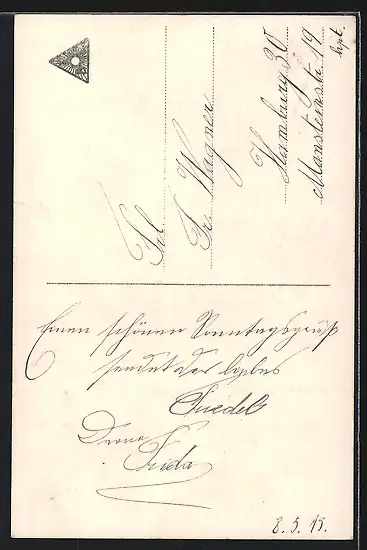 Frl.
Fr. Wagner
Hamburg 30
Mansteinstr. 19
hpt.
Einen schönen Sonntagsgruß
sendet der
Friedel
Deine
Frida
8.5.15.